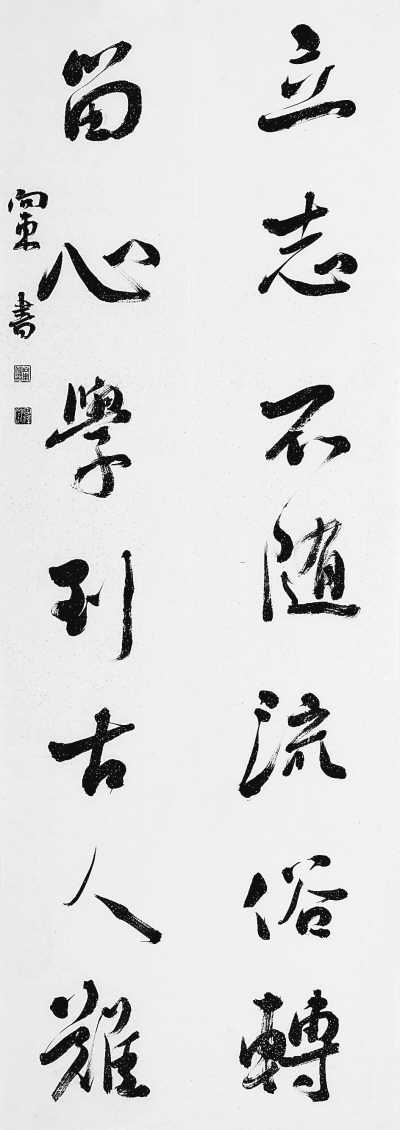 立志不随流俗轉
留心學到古人難
向東書